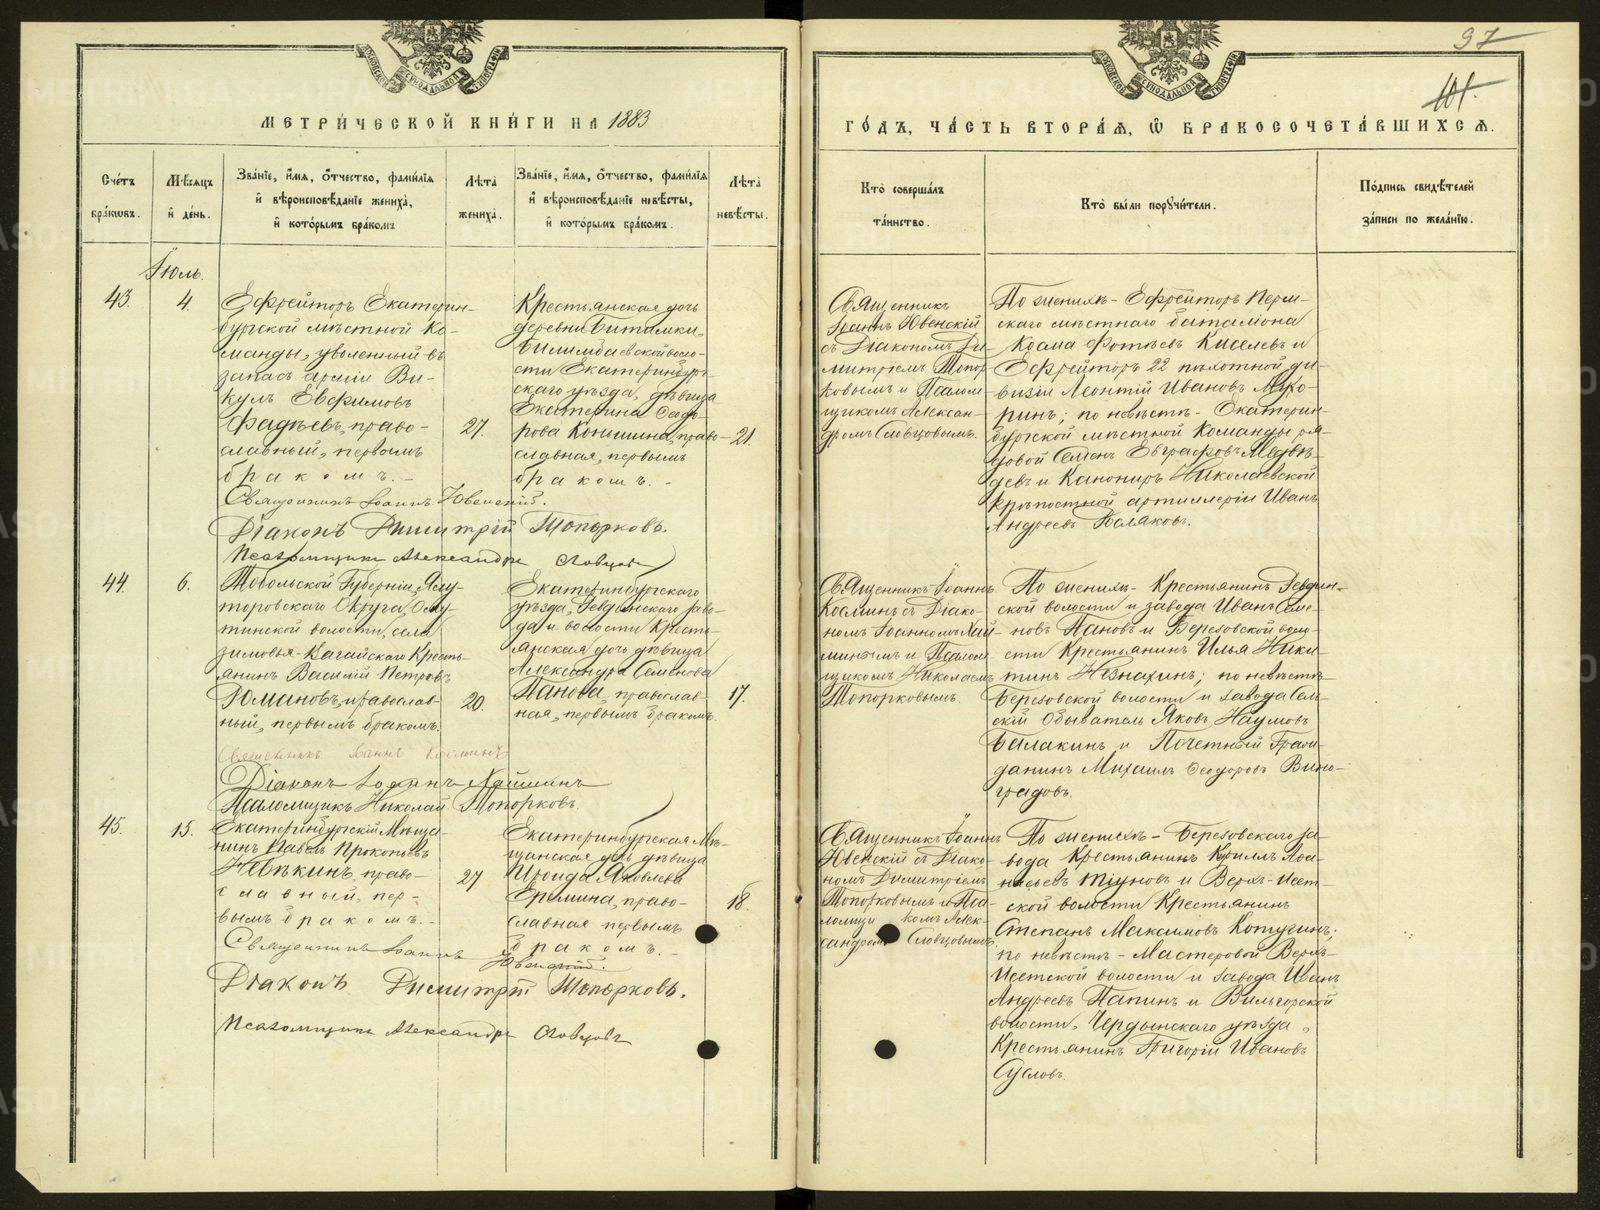 97
101.
МЕТРИЧЕСКОЙ КНИГИ НА 1883
ГОДЪ, ЧАСТЬ ВТОРАЯ, Ѿ БРАКОСОЧЕТАВШИХСЯ.
Счетъ
браковъ.
Мѣсяцъ
и день.
Званіе, имя, отчество, фамилія
и вѣроисповѣданіе жениха,
и которымъ бракомъ
Лѣта
жениха.
Званіе, имя, отчество, фамилія
и вѣроисповѣданіе невѣсты,
и которымъ бракомъ.
Лѣта
невѣсты.
Кто совершалъ
таинство.
Кто были поручители.
Подпись свидѣтелей
записи по желанію.
Іюль.
43.
4.
Ефрейторъ Екатерин-
бургской мѣстной Ко-
манды, уволенный въ
запасъ арміи Ви-
кулъ Евфимовъ
Фадѣевъ, право-
славный, первымъ
бракомъ.-
27.
Крестьянская дочь
деревни Битимки,
Билимбаевской воло-
сти Екатеринбург-
скаго уѣзда, дѣвица
Екатерина Сидо-
рова Коньшина, право-
славная, первымъ
бракомъ.-
21.
Священникъ
Іоаннъ Ювенскій
съ Діакономъ Ди-
митріемъ Топор-
ковымъ и Псалом-
щикомъ Алексан-
дромъ Словцовымъ.
По женихѣ - Ефрейторъ Перм-
скаго мѣстнаго баталіона
Косма Фотіевъ Киселевъ и
Ефрейторъ 22 пѣхотной ди-
визіи Леонтій Ивановъ Мухо-
ринъ; по невѣстѣ - Екатерин-
бургской мѣстной Команды ря-
довой Семенъ Евграфовъ Медвѣ-
девъ и Канониръ Николаевской
крѣпостной артиллеріи Иванъ
Андреевъ Поляковъ.
Священникъ Іоаннъ Ювенскій.
Діаконъ Димитрій Топорковъ.
Псаломщикъ Александръ Словцовъ
44.
6.
Тобольской Губерніи, Ялу-
торовскаго Округа, Ому-
тинской волости, села
Зимовья-Вагайскаго Кресть-
янинъ Василій Петровъ
Юмановъ, православ-
ный, первымъ бракомъ.
20.
Екатеринбургскаго
уѣзда, Ревдинскаго заво-
да и волости Кресть-
янская дочь дѣвица
Александра Семенова
Панова, православ-
ная, первымъ бракомъ.
17.
Священникъ Іоаннъ
Косминъ съ Діако-
номъ Іоанномъ Хай-
минымъ и Псалом-
щикомъ Николаемъ
Топорковымъ.
По женихѣ - Крестьянинъ Ревдин-
ской волости и завода Иванъ Семе-
новъ Пановъ и Березовской воло-
сти Крестьянинъ Илья Ники-
тинъ Незнахинъ; по невѣстѣ -
Березовской волости и завода Сель-
скій Обыватель Яковъ Наумовъ
Балакинъ и Почетный Граж-
данинъ Михаилъ Ѳеодоровъ Вино-
градовъ.
Священникъ Іоаннъ Косминъ
Діаконъ Іоаннъ Хайминъ
Псаломщикъ Николай Топорковъ.
45.
15.
Екатеринбургскій Мѣща-
нинъ Павелъ Прокопьевъ
Ивѣкинъ, право-
славный, пер-
вымъ бракомъ.-
27
Екатеринбургская Мѣ-
щанская дочь дѣвица
Ираида Яковлева
Еремина, право-
славная первымъ
бракомъ.-
18.
Священникъ Іоаннъ
Ювенскій съ Діако-
номъ Димитріемъ
Топорковымъ и Пса-
ломщикомъ Алек-
сандромъ Словцовымъ.
По женихѣ - Березовскаго за-
вода Крестьянинъ Кириллъ Аѳа-
насьевъ Тіуновъ и Верх-Исет-
ской волости Крестьянинъ
Степанъ Максимовъ Котугинъ;
по невѣстѣ - Мастеровой Верхъ-
Исетской волости и завода Иванъ
Андреевъ Папинъ и Вильгорской
волости, Чердынскаго уѣзда,
Крестьянинъ Григорій Ивановъ
Сусловъ.
Священникъ Іоаннъ
Ювенскій.
Діаконъ Димитрій Топорковъ.
Псаломщикъ Александръ Словцовъ
METRIKI.GASO-URAL.RU